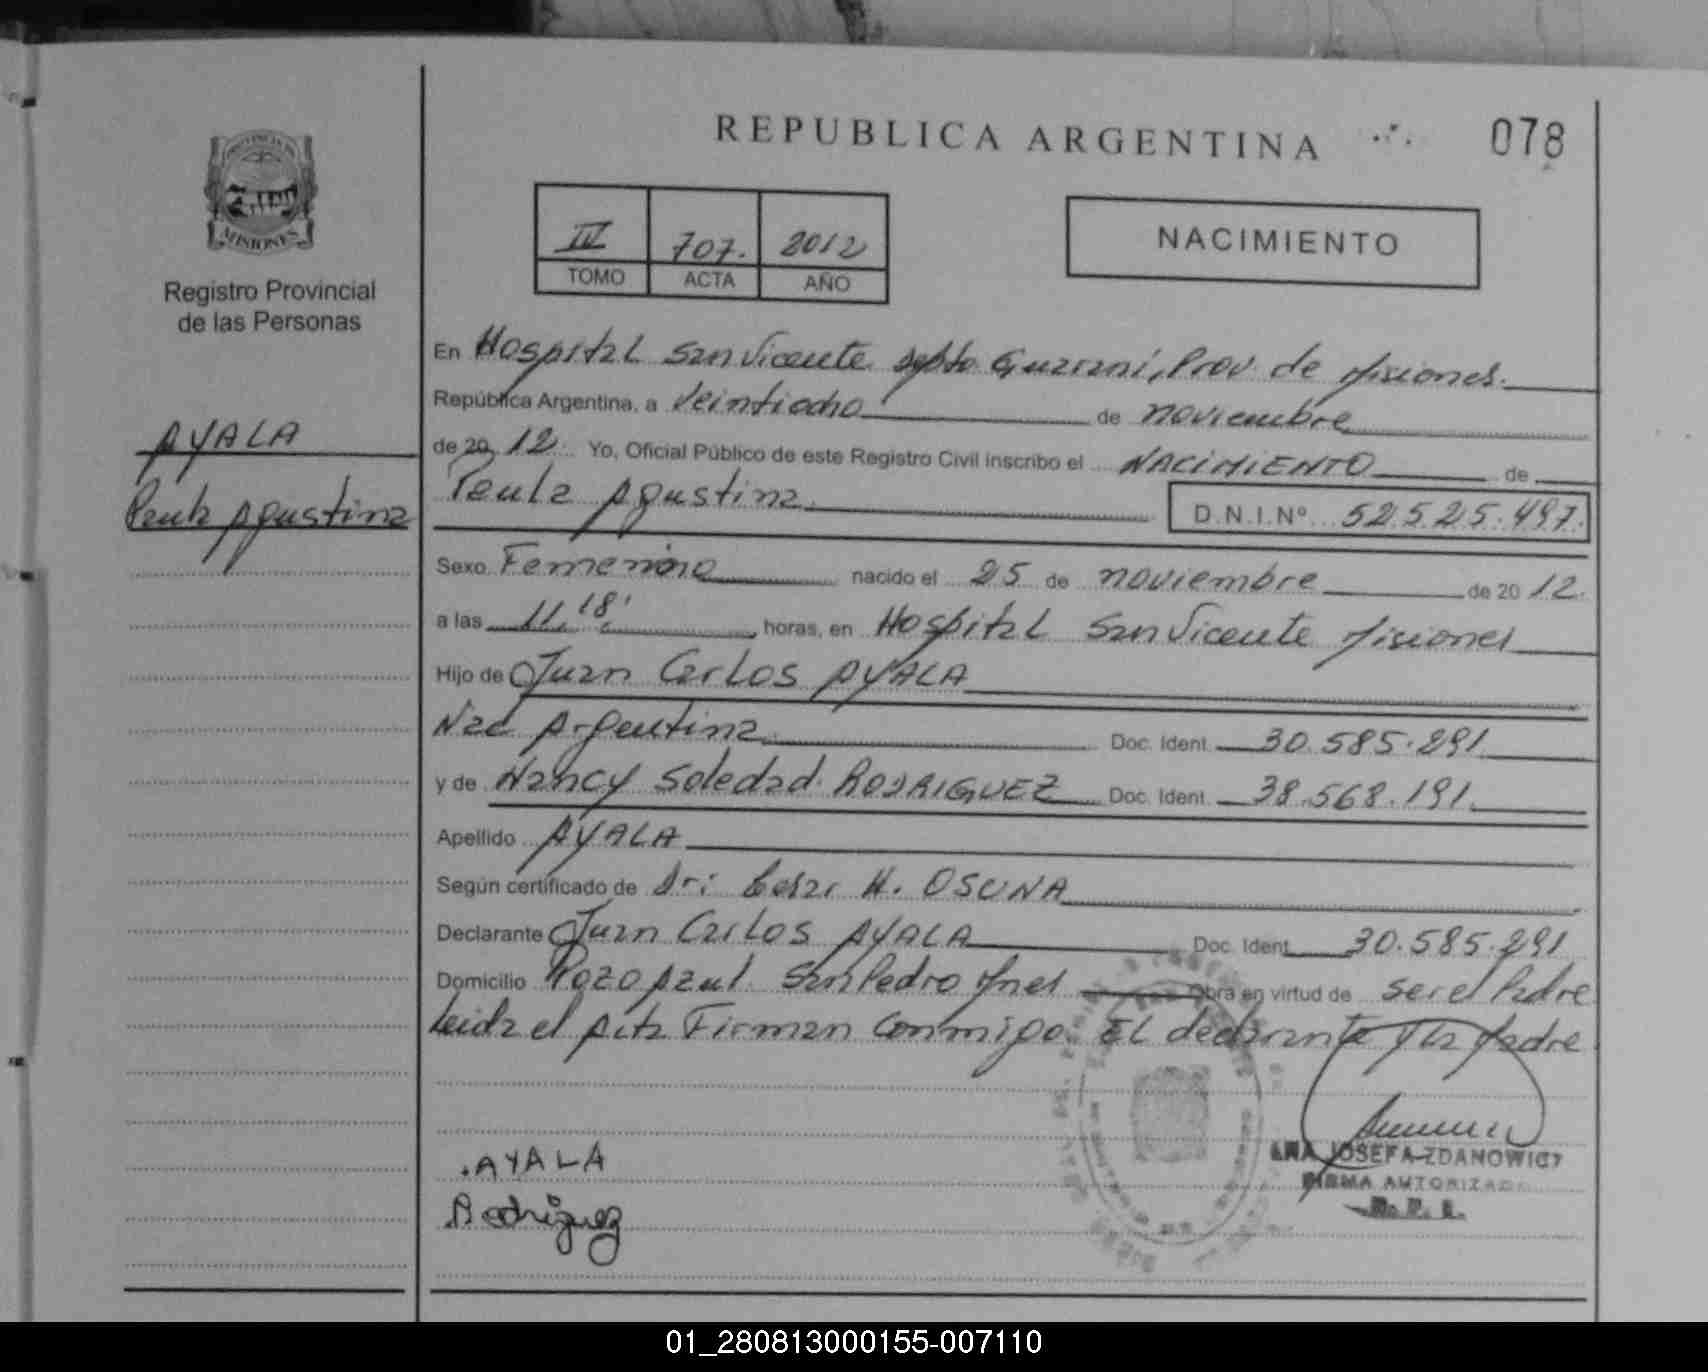 REPUBLICA ARGENTINA
078
PROVINCIA DE
MISIONES
Registro Provincial
de las Personas
IV 707. 2012
TOMO ACTA AÑO
NACIMIENTO
AYALA
Paula Agustina
En Hospital San Vicente Dpto Guarani, Prov. de Misiones.
República Argentina, a Veintiocho de noviembre
de 20 12. Yo, Oficial Público de este Registro Civil inscribo el NACIMIENTO de
Paula Agustina D.N.I.Nº 52.525.497.
Sexo Femenino nacido el 25 de noviembre de 20 12.
a las 11,18' horas, en Hospital San Vicente Misiones
Hijo de Juan Carlos AYALA
Nac Argentina Doc. Ident. 30.585.291
y de Nancy Soledad RODRIGUEZ Doc. Ident. 38.568.191.
Apellido AYALA
Según certificado de Dr: Cesar H. OSUNA
Declarante Juan Carlos AYALA Doc. Ident. 30.585.291
Domicilio Pozo Azul San Pedro Mnes Obra en virtud de ser el Padre
Leida el Acta Firman Conmigo El declarante y la Madre
AYALA
Rodriguez
ANA JOSEFA ZDANOWICZ
FIRMA AUTORIZADA
01_280813000155-007110